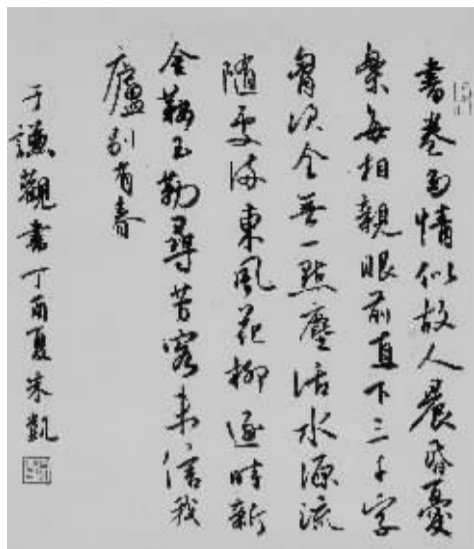 書卷多情似故人晨昏憂
樂每相親眼前直下三千字
胷次全無一點塵活水源流
隨處滿東風花柳逐時新
金鞍玉勒尋芳客未信我
廬別有春
于謙觀書丁酉夏朱凱